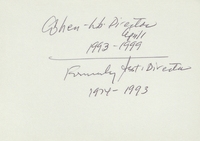 Director
April
1993-1999
Formerly Asst: Director
1974-1993